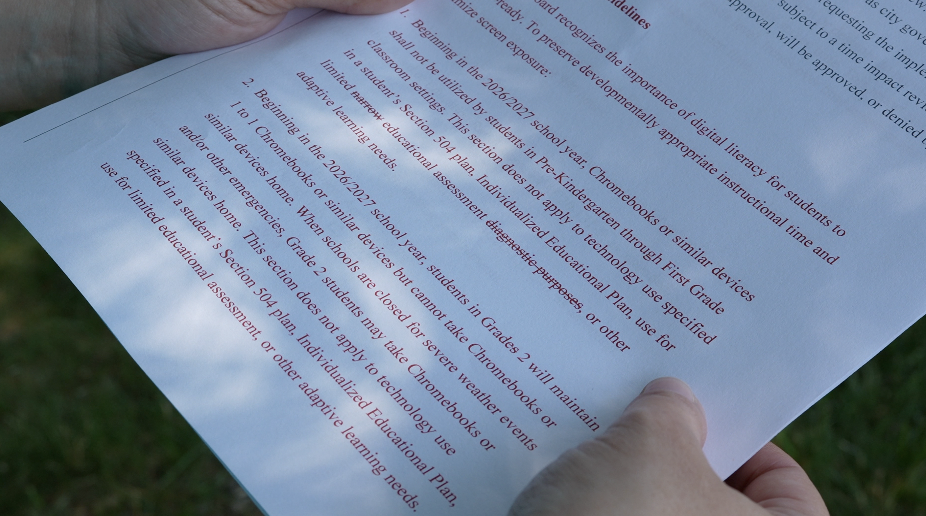 idelines
ard recognizes the importance of digital literacy for students to
ready. To preserve developmentally appropriate instructional time and
mize screen exposure:
1. Beginning in the 2026/2027 school year, Chromebooks or similar devices
shall not be utilized by students in Pre-Kindergarten through First Grade
classroom settings. This section does not apply to technology use specified
in a student's Section 504 plan, Individualized Educational Plan, use for
limited narrow educational assessment diagnostic purposes, or other
adaptive learning needs.
2. Beginning in the 2026/2027 school year, students in Grades 2 will maintain
1 to 1 Chromebooks or similar devices but cannot take Chromebooks or
similar devices home. When schools are closed for severe weather events
and/or other emergencies, Grade 2 students may take Chromebooks or
similar devices home. This section does not apply to technology use
specified in a student's Section 504 plan, Individualized Educational Plan,
use for limited educational assessment, or other adaptive learning needs.
as city gove
requesting the imple
subject to a time impact revi
pproval, will be approved, or denied